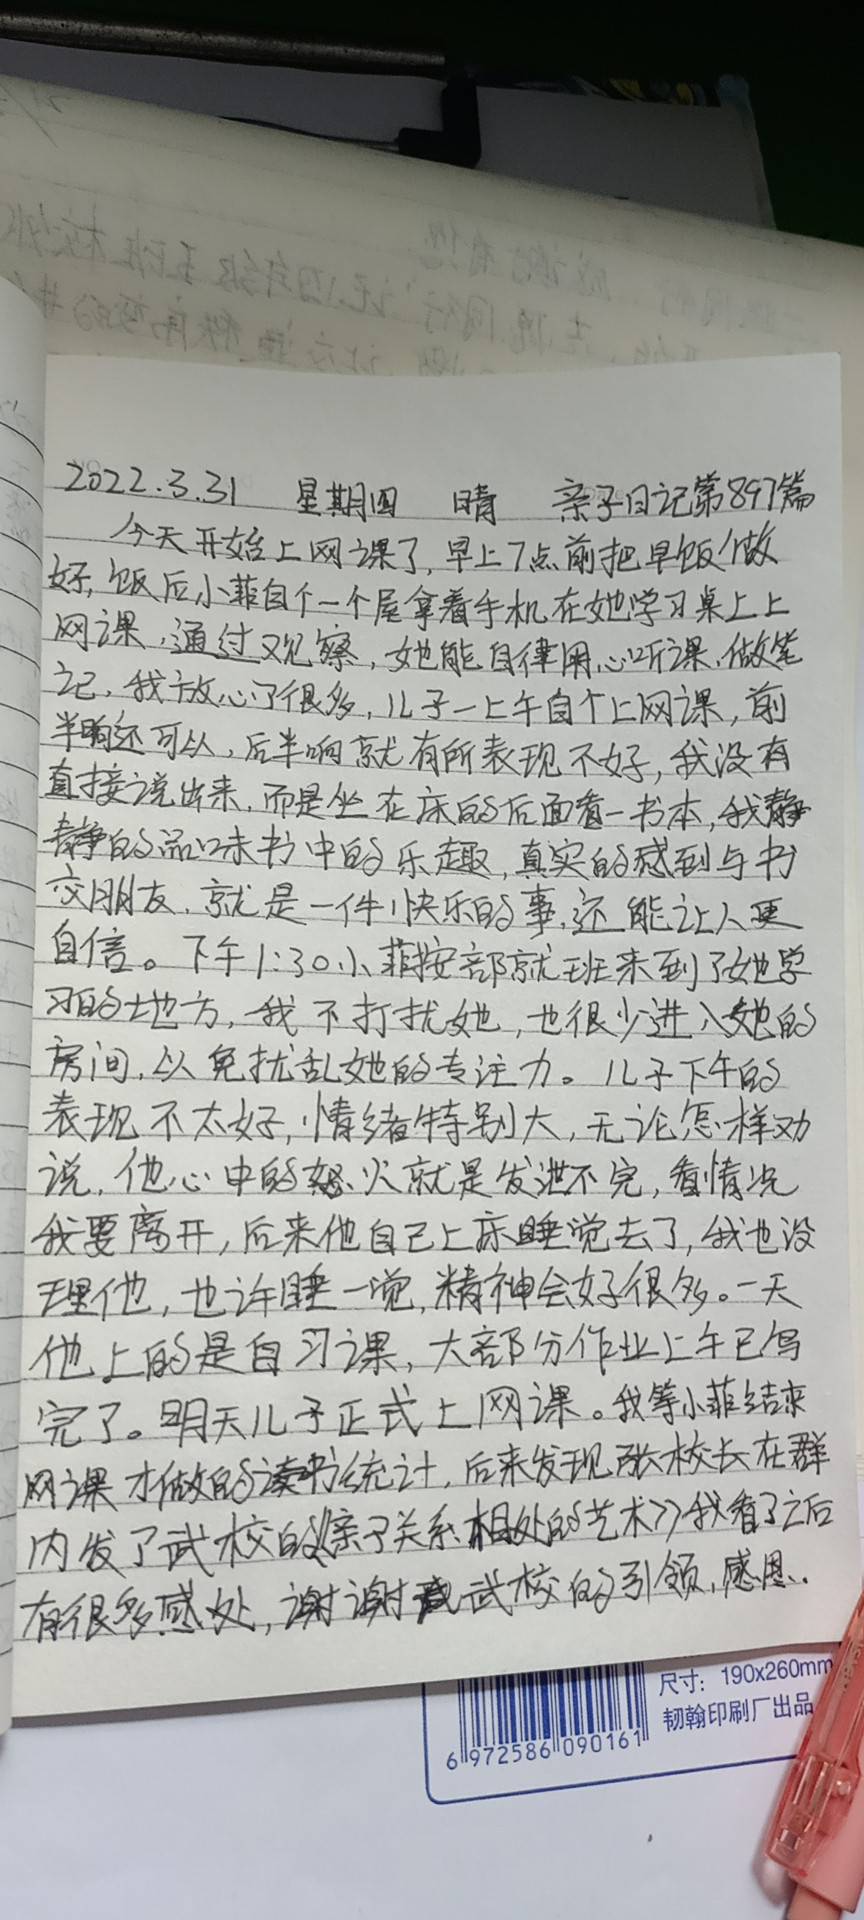 2022.3.31 星期四 晴 亲子日记第897篇
今天开始上网课了,早上7点前把早饭做
好,饭后小菲自个一个屋拿着手机在她学习桌上上
网课,通过观察,她能自律用心听课,做笔
记,我放心了很多,儿子一上午自个上网课,前
半晌还可以,后半响就有所表现不好,我没有
直接说出来,而是坐在床的后面看一书本,我静
静的品味书中的乐趣,真实的感到与书
交朋友,就是一件快乐的事,还能让人更
自信。下午1:30小菲按部就班来到了她学
习的地方,我不打扰她,也很少进入她的
房间,以免扰乱她的专注力。儿子下午的
表现不太好,情绪特别大,无论怎样劝
说,他心中的怒火就是发泄不完,看情况
我要离开,后来他自己上床睡觉去了,我也没
理他,也许睡一觉,精神会好很多。一天
他上的是自习课,大部分作业上午已写
完了。明天儿子正式上网课。我等小菲结束
网课才做的读书统计,后来发现张校长在群
内发了武校的《亲子关系相处的艺术》我看了之后
有很多感处,谢谢武校的引领,感恩.
尺寸:190x260mm
韧翰印刷厂出品
6 972586 090161